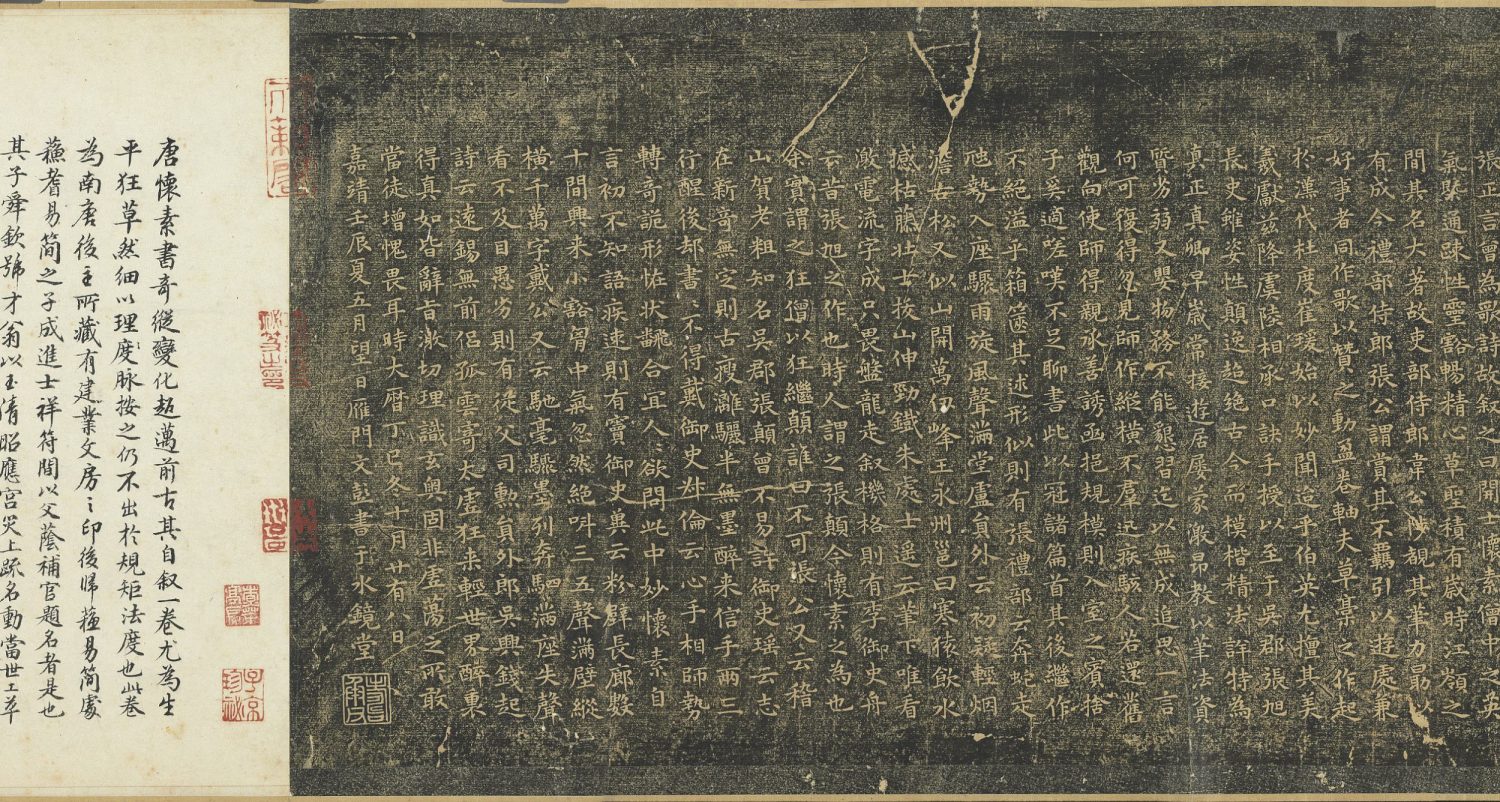 張正言曾為歌詩故敘之曰開士懷素僧中之英
氣槩通疎性靈豁暢精心草聖積有歲時江嶺之
間其名大著故吏部侍郎韋公陟覩其筆力勗以
有成今禮部侍郎張公謂賞其不羈引以遊處兼
好事者同作歌以贊之動盈卷軸夫草藁之作起
於漢代杜度崔瑗始以妙聞迨乎伯英尤擅其美
羲獻茲降虞陸相承口訣手授以至于吳郡張旭
長史雖姿性顛逸超絕古今而模楷精法詳特為
真正真卿早歲常接遊居屢蒙激昂教以筆法資
質劣弱又嬰物務不能懇習迄以無成追思一言
何可復得忽見師作縱橫不羣迅疾駭人若還舊
觀向使師得親承善誘函挹規模則入室之賓捨
子奚適嗟嘆不足聊書此以冠諸篇首其後繼作
不絕溢乎箱篋其述形似則有張禮部云奔蛇走
虺勢入座驟雨旋風聲滿堂盧員外云初疑輕烟
澹古松又似山開萬仞峰王永州邕曰寒猿飲水
撼枯藤壯士拔山伸勁鐵朱處士遙云筆下唯看
激電流字成只畏盤龍走敘機格則有李御史舟
云昔張旭之作也時人謂之張顛今懷素之為也
余實謂之狂僧以狂繼顛誰曰不可張公又云稽
山賀老粗知名吳郡張顛曾不易許御史瑤云志
在新奇無定則古瘦漓驪半無墨醉來信手兩三
行醒後却書書不得戴御史叔倫云心手相師勢
轉奇詭形恠狀翻合宜人人欲問此中妙懷素自
言初不知語疾速則有竇御史冀云粉壁長廊數
十間興来小豁胷中氣忽然絕叫三五聲滿壁縱
橫千萬字戴公又云馳毫驟墨列奔駟滿座失聲
看不及目愚劣則有從父司勳員外郎吳興錢起
詩云遠錫無前侶孤雲寄太虛狂来輕世界醉裏
得真如皆辭旨激切理識玄奧固非虛蕩之所敢
當徒增愧畏耳時大曆丁巳冬十月廿有八日
嘉靖壬辰夏五月望日雁門文彭書于水鏡堂
唐懷素書奇縱變化超邁前古其自叙一卷尤為生
平狂草然細以理度脉按之仍不出於規矩法度也此卷
為南唐後主所藏有建業文房之印後歸蘓易簡處
蘓耆易簡之子成進士祥符間以父蔭補官題名者是也
其子舜欽號才翁以玉清昭應宮災上疏名動當世工草